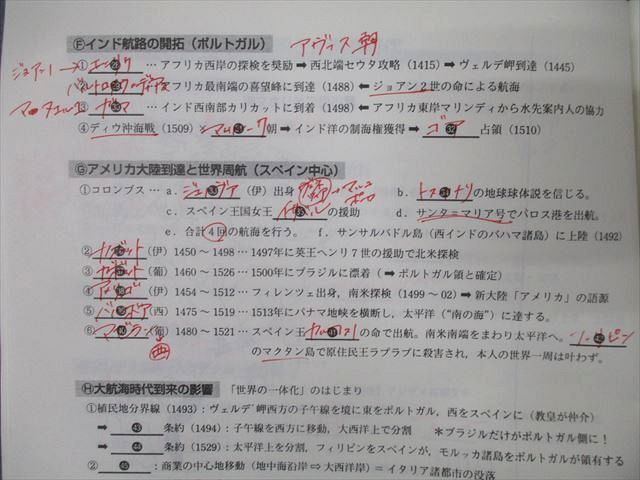 Ⓕインド航路の開拓（ポルトガル） アヴィス朝
ジョアン1→ ① エンリケ … アフリカ西岸の探検を奨励 ➡ 西北端セウタ攻略（1415）➡ ヴェルデ岬到達（1445）
② バルトロメウ=ディアス アフリカ最南端の喜望峰に到達（1488）⬅ ジョアン2世の命による航海
マヌエル1 ③ ガマ … インド西南部カリカットに到着（1498）⬅ アフリカ東岸マリンディから水先案内人の協力
④ディウ沖海戦（1509） マムルーク朝 ➡ インド洋の制海権獲得 ➡ ゴア 32 占領（1510）
Ⓖアメリカ大陸到達と世界周航（スペイン中心）
①コロンブス … a. ジェノヴァ（伊）出身 → マルコ=ポーロ b. トスカネリ 34 の地球球体説を信じる。
c. スペイン王国女王 イサベル 35 の援助 d. サンタ=マリア号でパロス港を出航。
e. 合計4回の航海を行う。 f. サンサルバドル島（西インドのバハマ諸島）に上陸（1492）
② カボット（伊）1450 ～ 1498 … 1497年に英王ヘンリ7世の援助で北米探検
③ カブラル（葡）1460 ～ 1526 … 1500年にブラジルに漂着（➡ ポルトガル領と確定）
④ アメリゴ（伊）1454 ～ 1512 … フィレンツェ出身，南米探検（1499 ～ 02）➡ 新大陸「アメリカ」の語源
⑤ バルボア（西）1475 ～ 1519 … 1513年にパナマ地峡を横断し，太平洋（“南の海”）に達する。
⑥ マゼラン（葡）1480 ～ 1521 … スペイン王 カルロス1 41 の命で出航。南米南端をまわり太平洋へ。 フィリピン 42
西 のマクタン島で原住民王ラプラプに殺害され，本人の世界一周は叶わず。
Ⓗ大航海時代到来の影響 「世界の一体化」のはじまり
①植民地分界線（1493）：ヴェルデ岬西方の子午線を境に東をポルトガル，西をスペインに（教皇が仲介）
➡ 43 条約（1494）：子午線を西方に移動，大西洋上で分割 ＊ブラジルだけがポルトガル側に！
➡ 44 条約（1529）：太平洋上を分割，フィリピンをスペインが，モルッカ諸島をポルトガルが領有する
② 45 ：商業の中心地移動（地中海沿岸 ⇨ 大西洋岸）＝ イタリア諸都市の没落